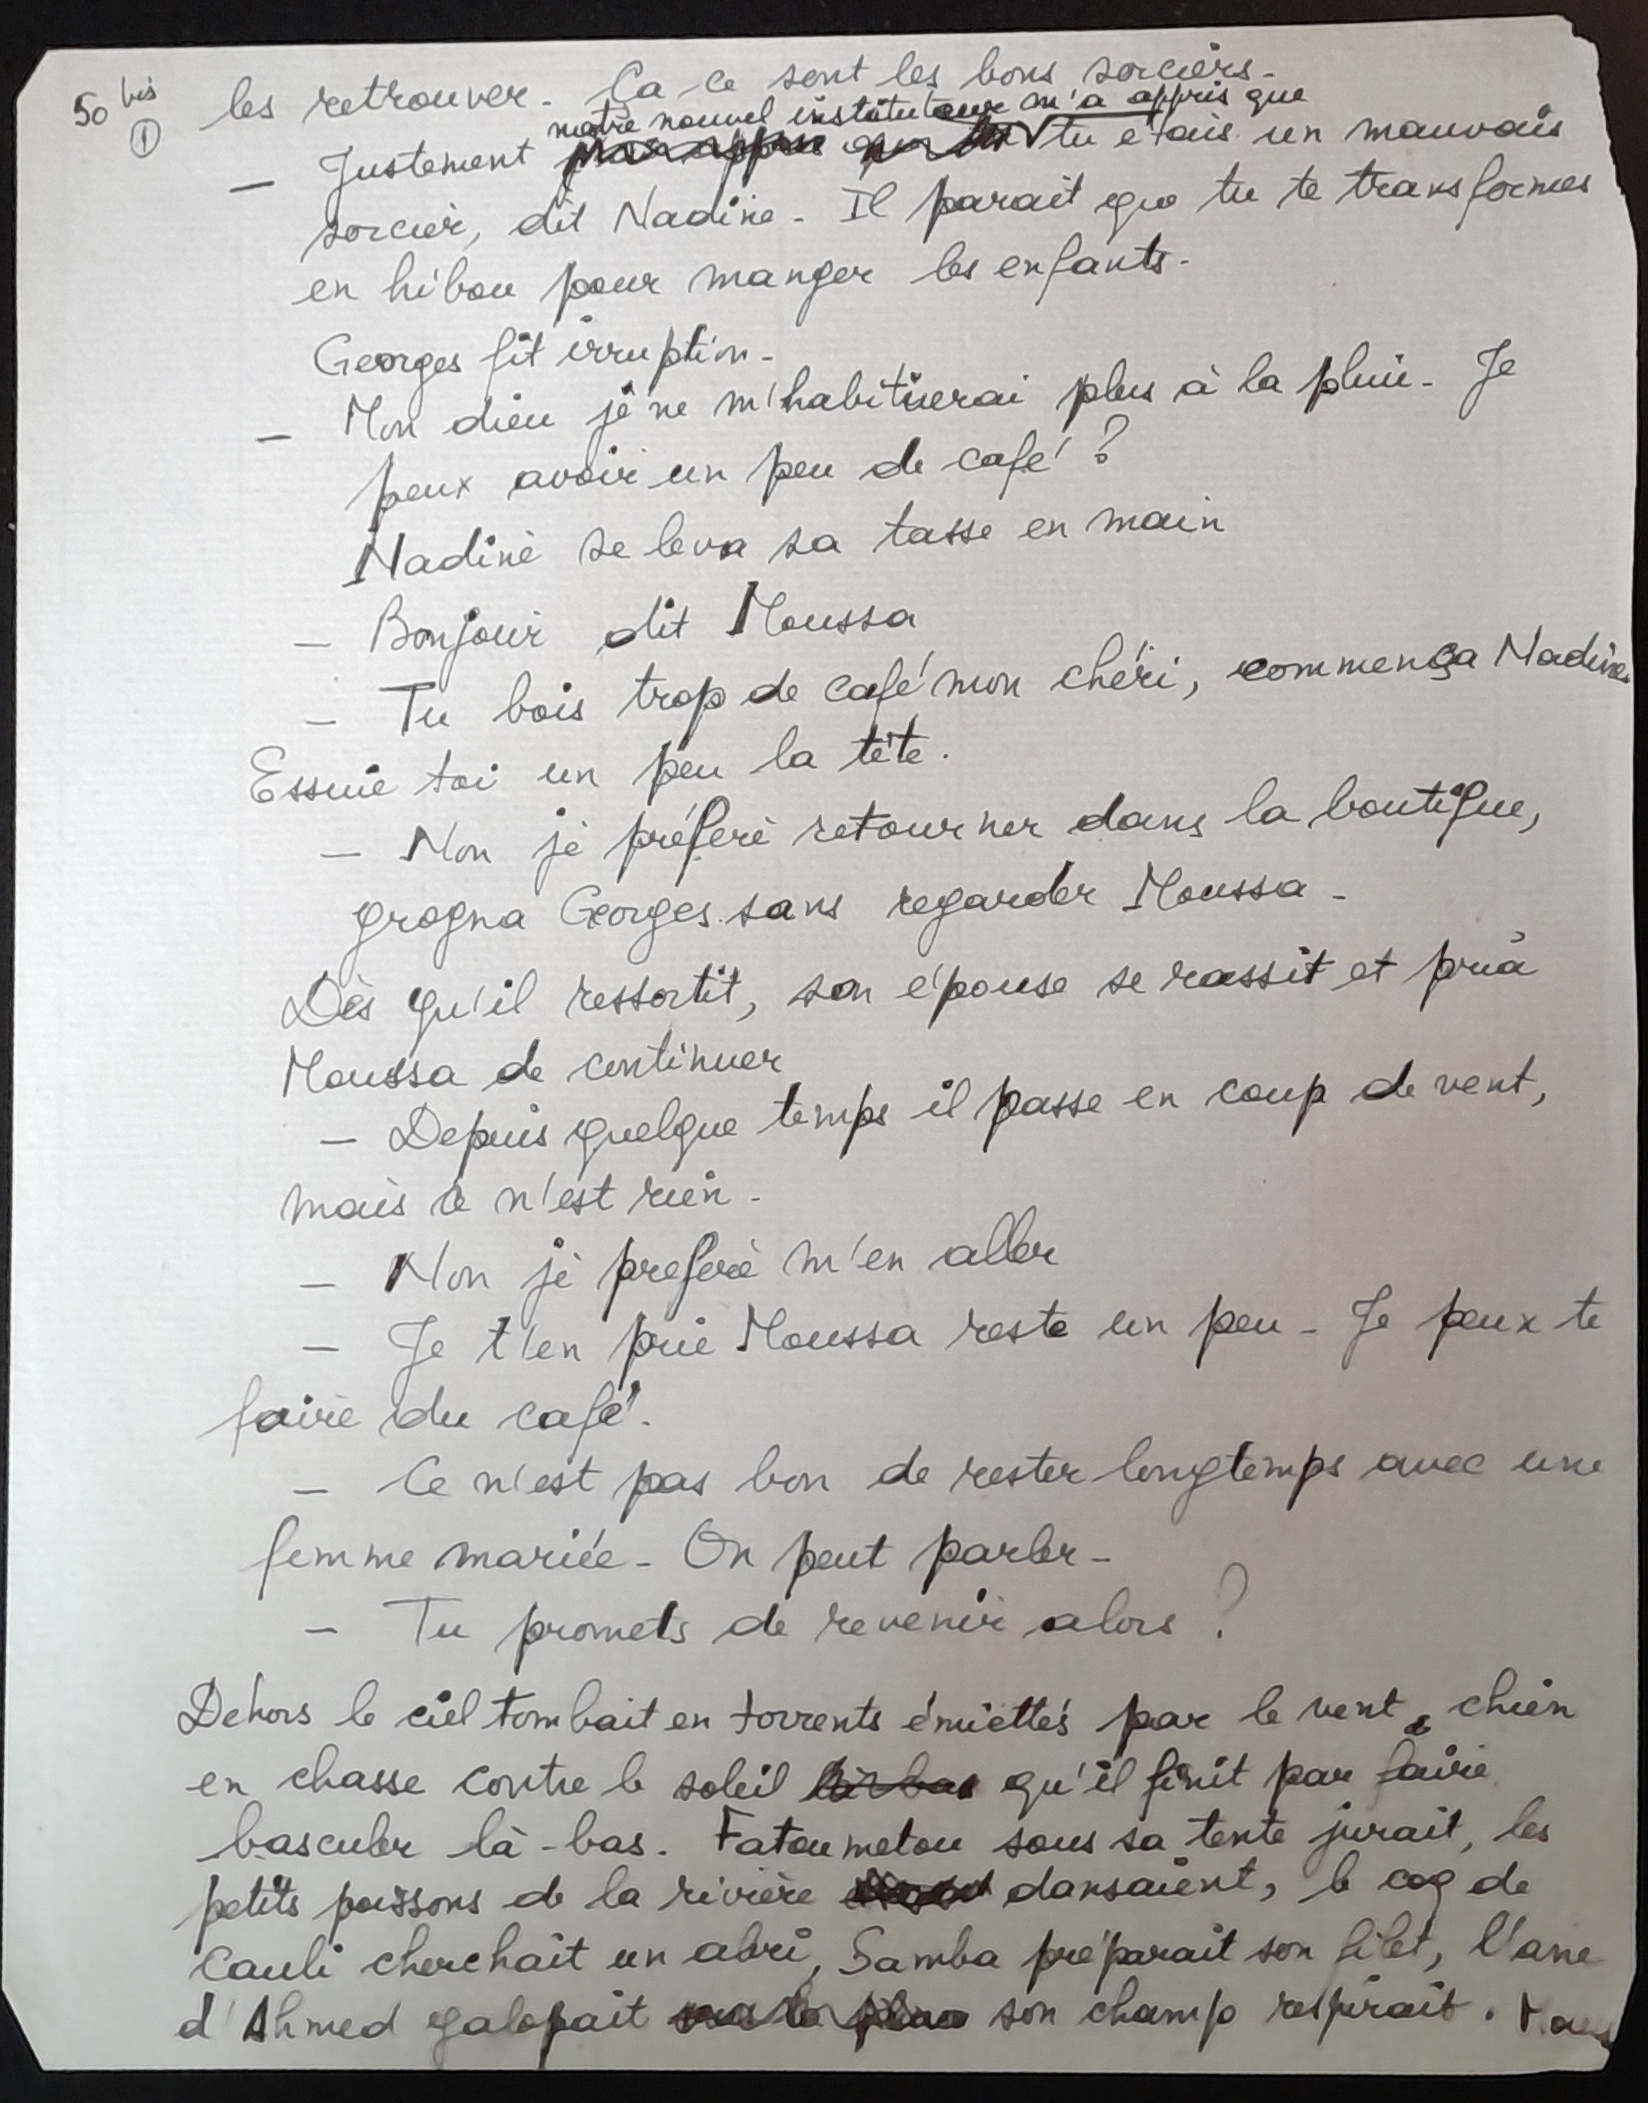 50 bis
①
les retrouver. Ca ce sont les bons sorciers.
notre nouvel instituteur m'a appris que
— Justement tu étais un mauvais
sorcier, dit Nadine. Il parait que tu te transformes
en hibou pour manger les enfants.
Georges fit irruption.
— Mon dieu je ne m'habituerai plus à la pluie. Je
peux avoir un peu de café ?
Nadine se leva sa tasse en main
— Bonjour dit Moussa
— Tu bois trop de café mon chéri, commença Nadine.
Essuie toi un peu la tête.
— Non je préfère retourner dans la boutique,
grogna Georges sans regarder Moussa.
Dès qu'il ressortit, son épouse se rassit et pria
Moussa de continuer
— Depuis quelque temps il passe en coup de vent,
mais ce n'est rien.
— Non je prefère m'en aller
— Je t'en prie Moussa reste un peu. Je peux te
faire du café.
— Ce n'est pas bon de rester longtemps avec une
femme mariée. On peut parler.
— Tu promets de revenir alors ?
Dehors le ciel tombait en torrents émiettés par le vent, chien
en chasse contre le soleil qu'il finit par faire
basculer là-bas. Fatoumetou sous sa tente jurait, les
petits poissons de la rivière dansaient, le coq de
Cauli cherchait un abri, Samba préparait son filet, l'ane
d'Ahmed galopait son champ respirait.